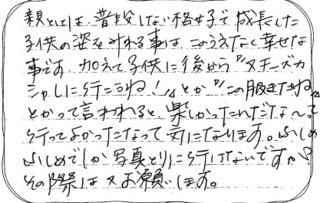 親としては、普段しない格好で成長した
子供の姿をみれる事は、このうえなく幸せな
事です。加えて子供に後から〝スタジーズカ
シャしに行こうね!〟とか〝この服きたね〟
とかって言われると、楽しかったんだな〜って
行ってよかったなって気になります。ふしめ
ふしめでしか写真とりに行けないですが
その際は又お願いします。